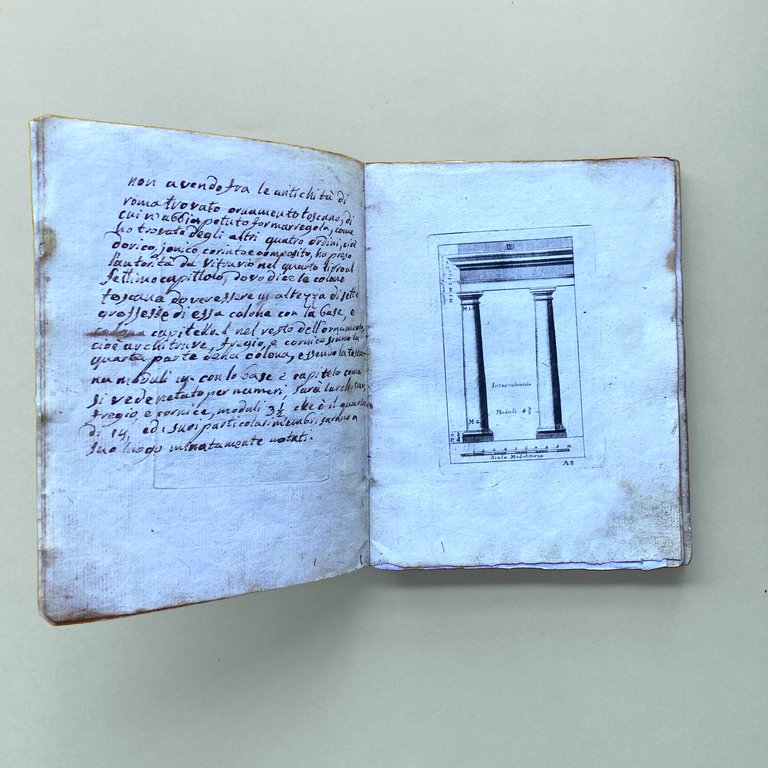 non avendo fra le antichità di
roma trovato ornamento toscano, di
cui n'abbia potuto formar regola, come
ho trovato degli altri quatro ordini, cioè
dorico, jonico corinto e composito, ho preso
l'autorità da Vitruvio nel quarto libro al
settimo capittolo, dove dice le colone
toscana dover essere in altezza di sette
grossesse di essa colona con la base, e
capitello. nel resto dell'ornamento,
cioè architrave, fregio, e cornice siano la
quarta parte della colona, essendo la tosca-
na moduli 14. con la base e capitelo come
si vede netato per numeri, sarà l'architrave,
fregio, e cornice, moduli 3½, che è il quarto
di 14, ed i suoi particolari membri sarano a
suo luogo minatamente notati.
IV
M. 1
Intercolunnio
Moduli 4 ⅔
M. 12
M. 1
Scala Modulatoria